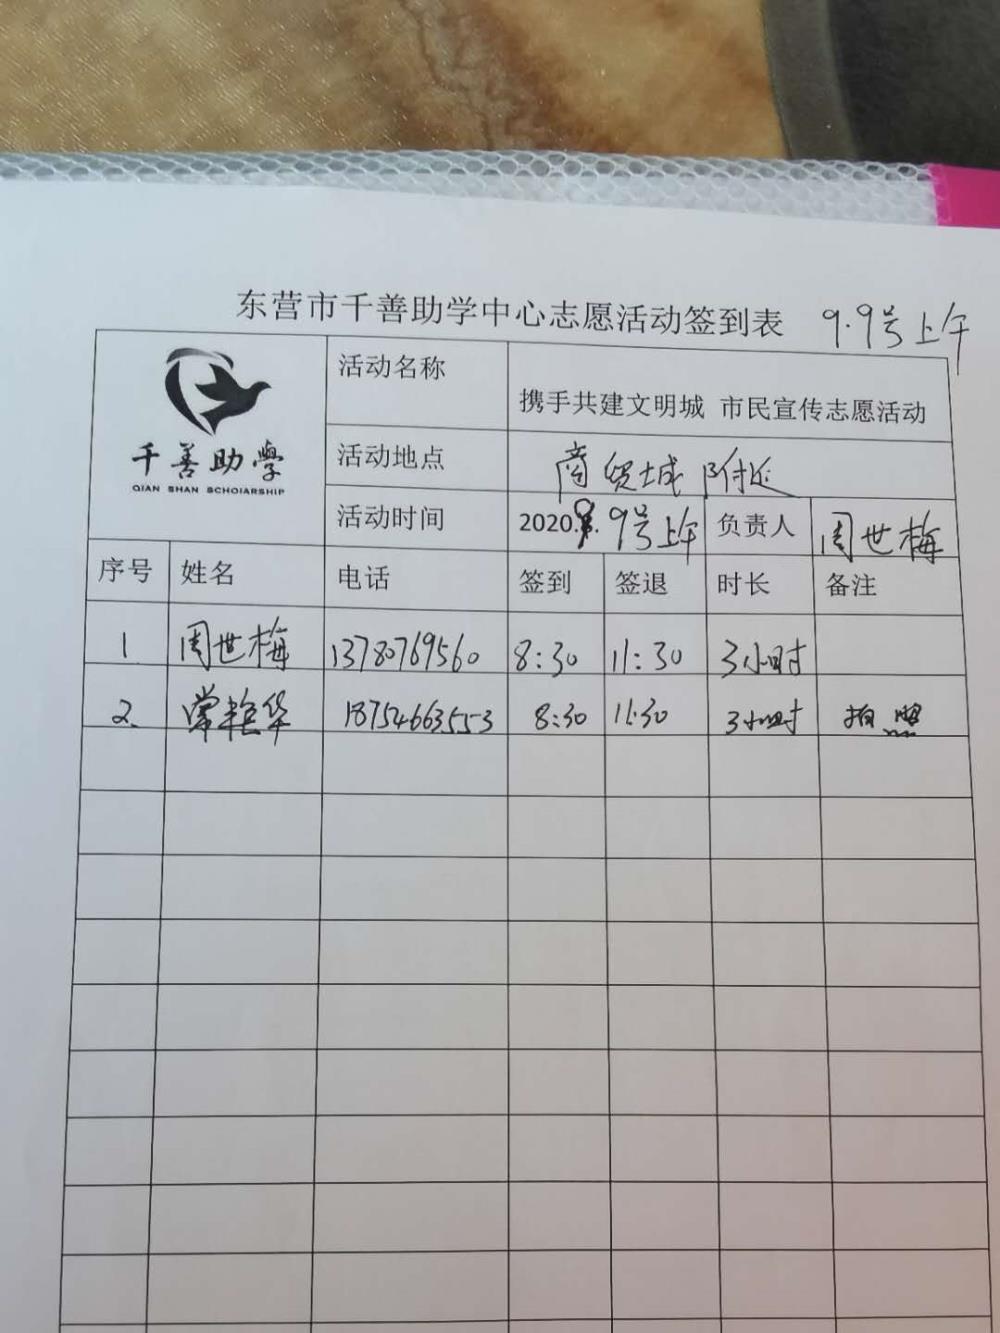 东营市千善助学中心志愿活动签到表 9.9号上午
千善助学
QIAN SHAN SCHOIARSHIP
活动名称 携手共建文明城 市民宣传志愿活动
活动地点 商贸城附近
活动时间 2020.9.9号上午 负责人 周世梅
序号 姓名 电话 签到 签退 时长 备注
1 周世梅 13780769560 8:30 11:30 3小时
2. 常艳华 18754663553 8:30 11:30 3小时 拍照